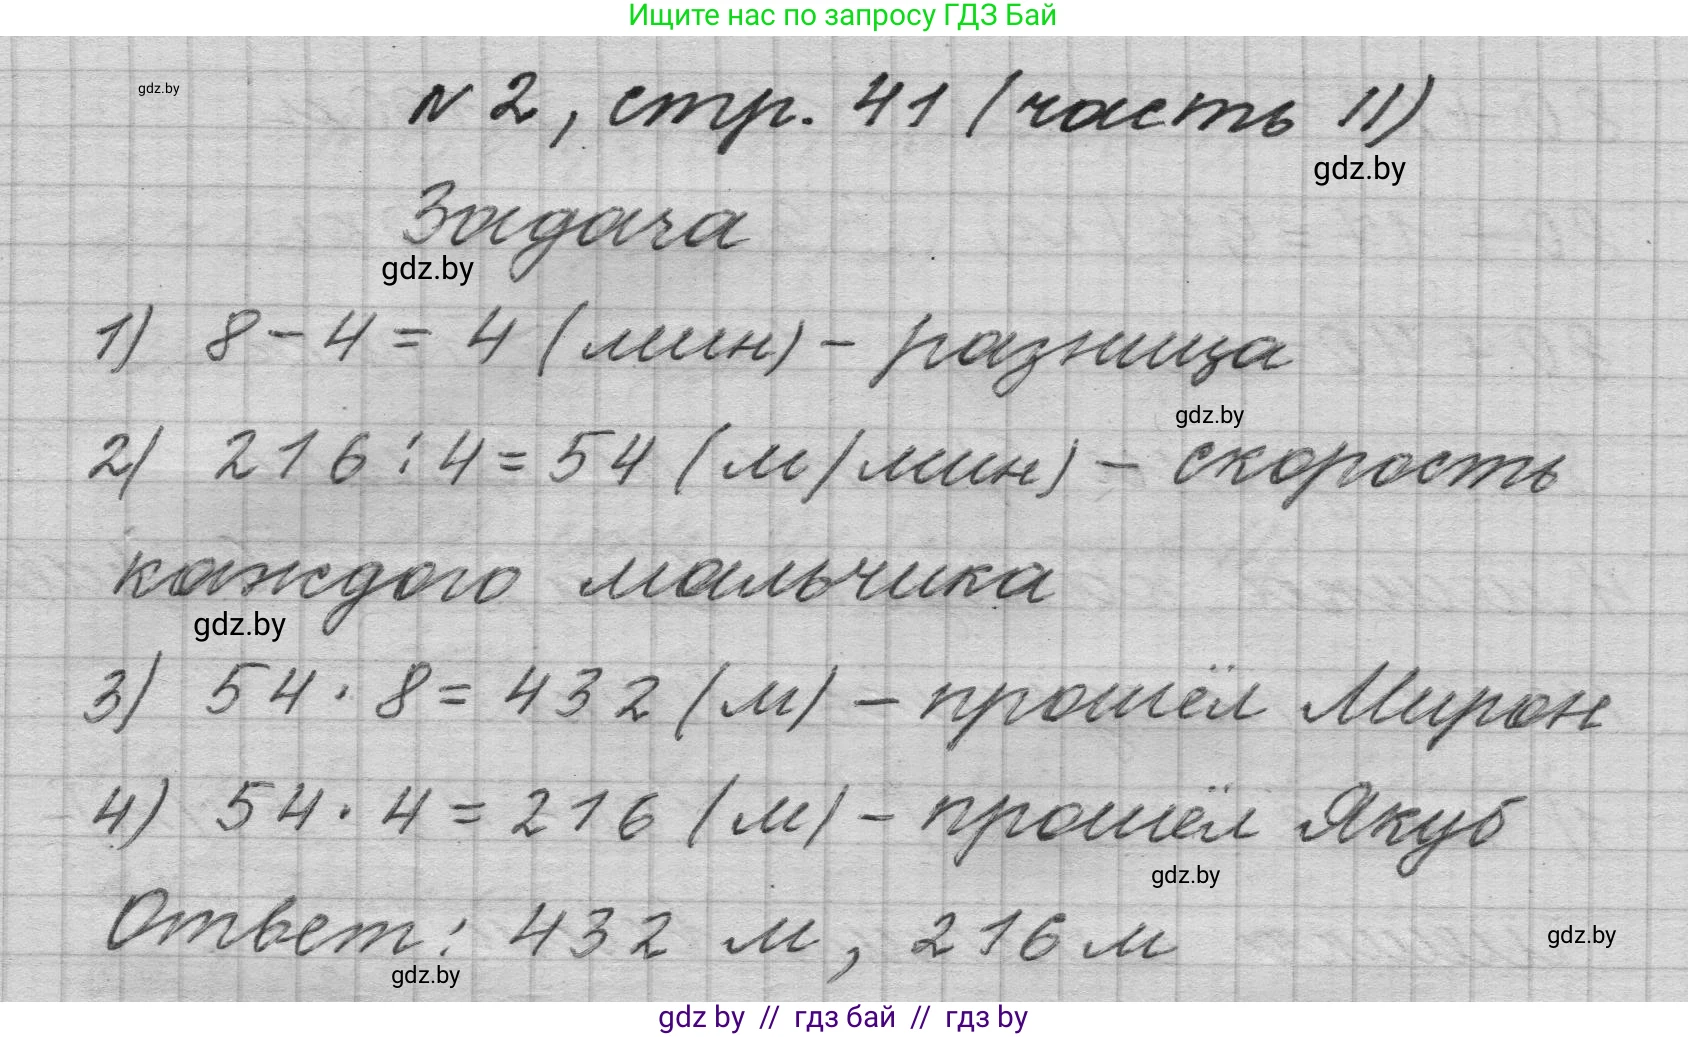 Ищите нас по запросу ГДЗ Бай
gdz.by
N 2, стр. 41 (часть II)
gdz.by
Задача
gdz.by
1) 8 - 4 = 4 (мин) - разница
gdz.by
2) 216 : 4 = 54 (м/мин) - скорость
каждого мальчика
gdz.by
3) 54 · 8 = 432 (м) - прошёл Мирон
4) 54 · 4 = 216 (м) - прошёл Якуб
gdz.by
Ответ: 432 м, 216 м
gdz.by
gdz.by
gdz by // гдз бай // гдз by